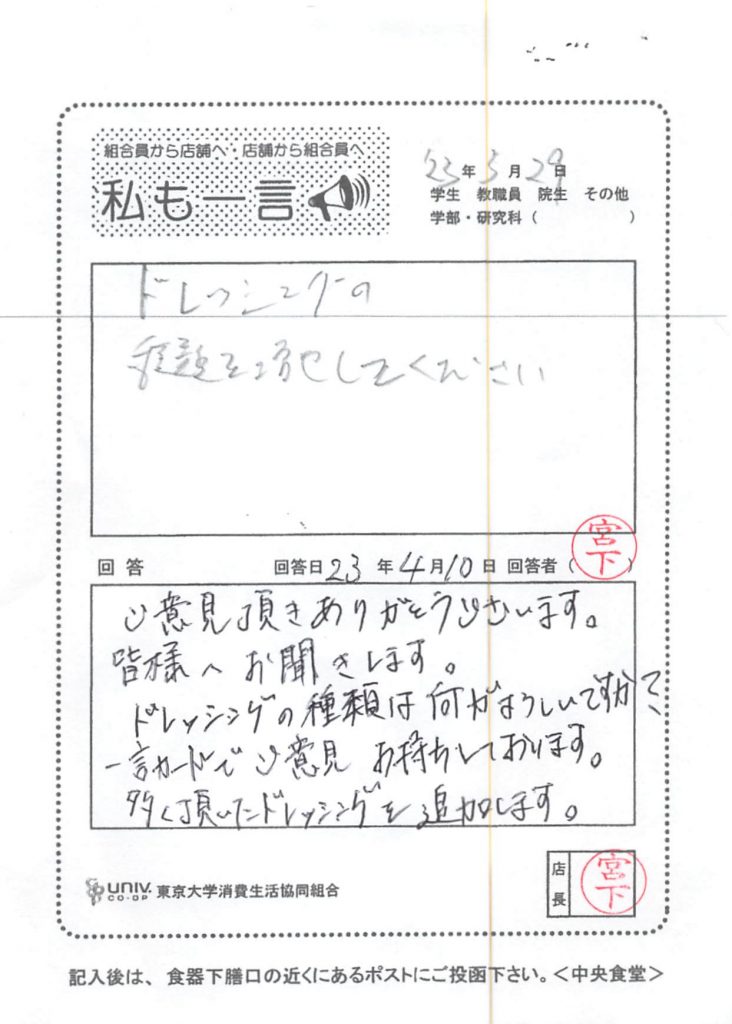 組合員から店舗へ・店舗から組合員へ
私も一言
23年3月29日
学生 教職員 院生 その他
学部・研究科( )
ドレッシングの
種類を増やしてください
回答 回答日23年4月10日 回答者(宮下)
ご意見頂きありがとうございます。
皆様へお聞きします。
ドレッシングの種類は何がよろしいですか?
一言カードでご意見お待ちしております。
多く頂いたドレッシングを追加します。
UNIV. CO-OP 東京大学消費生活協同組合
店長 宮下
記入後は、食器下膳口の近くにあるポストにご投函下さい。<中央食堂>